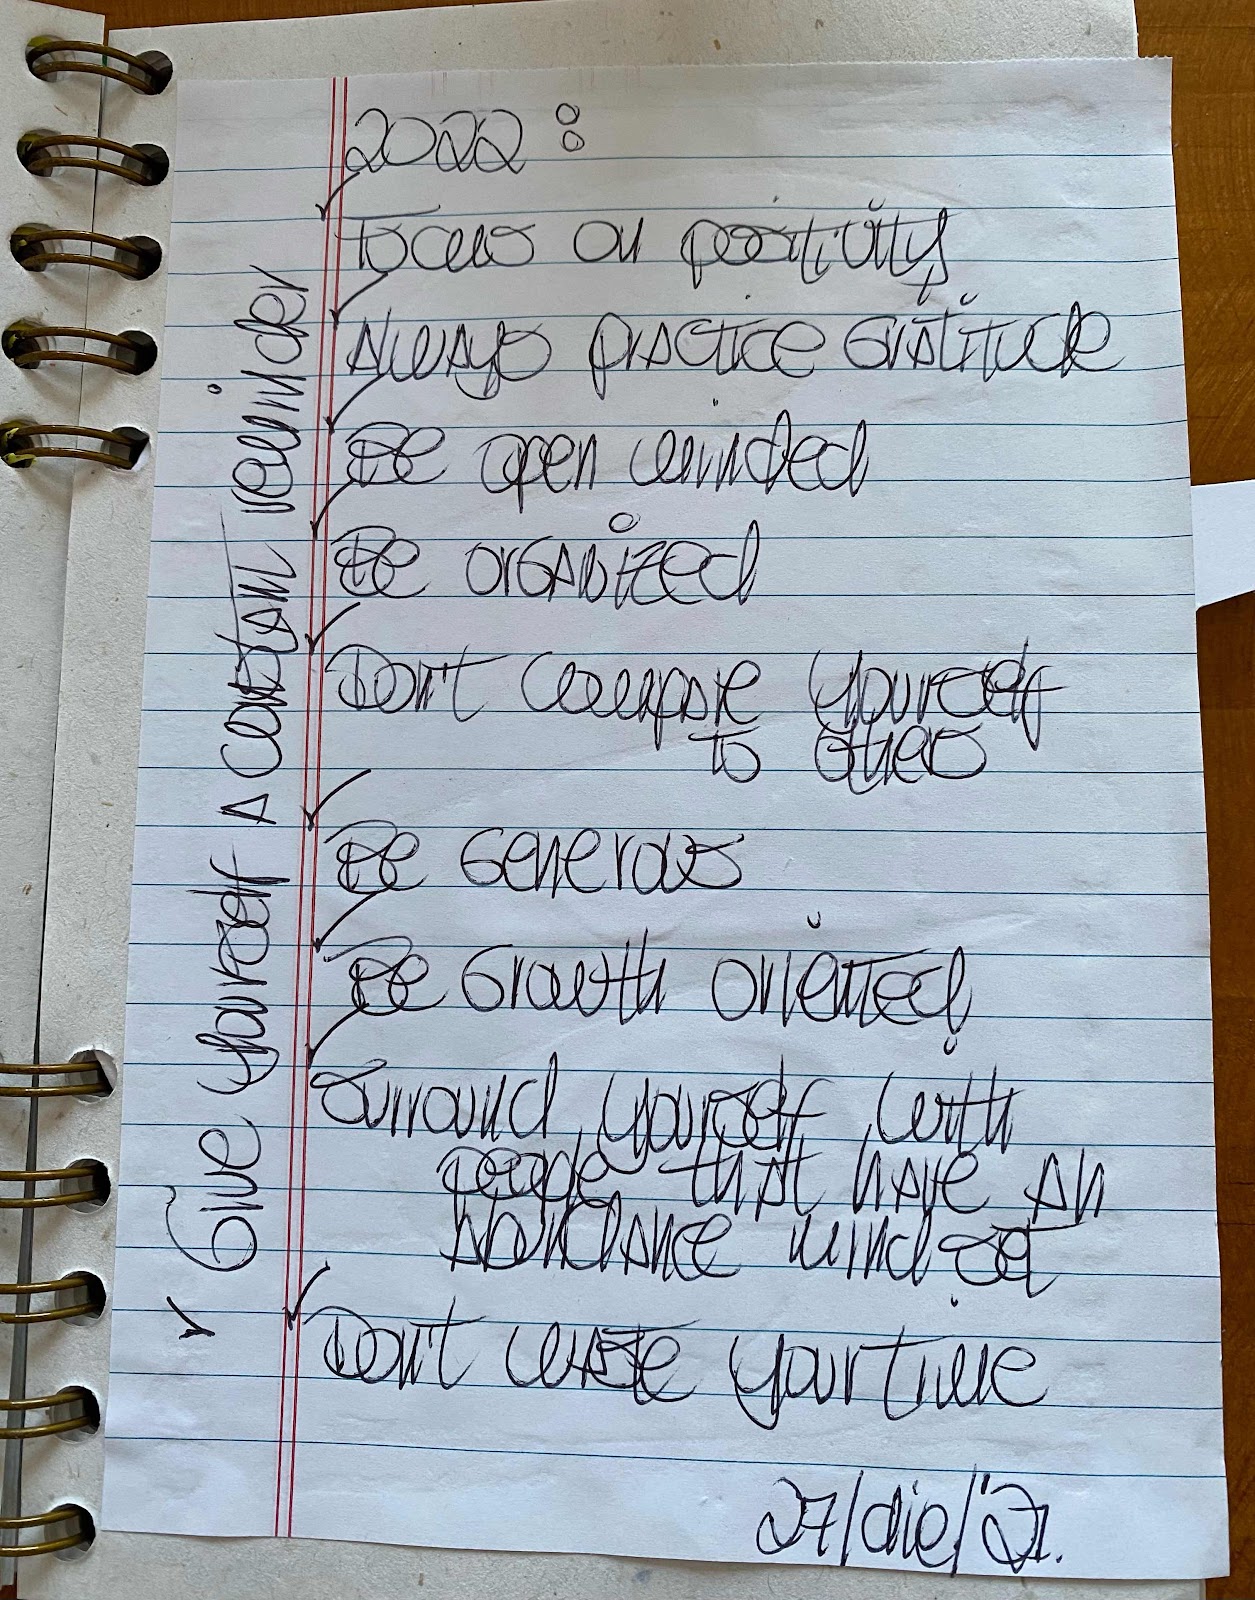 2022 :
✓ Focus on positivity
✓ Always practice gratitude
✓ Be open minded
✓ Be organized
✓ Don't compare yourself
to others
✓ Be generous
✓ Be growth oriented
✓ Surround yourself with
people that have an
abundance mind set
✓ Don't waste your time
27/dic/'21.
✓ Give yourself a constant reminder